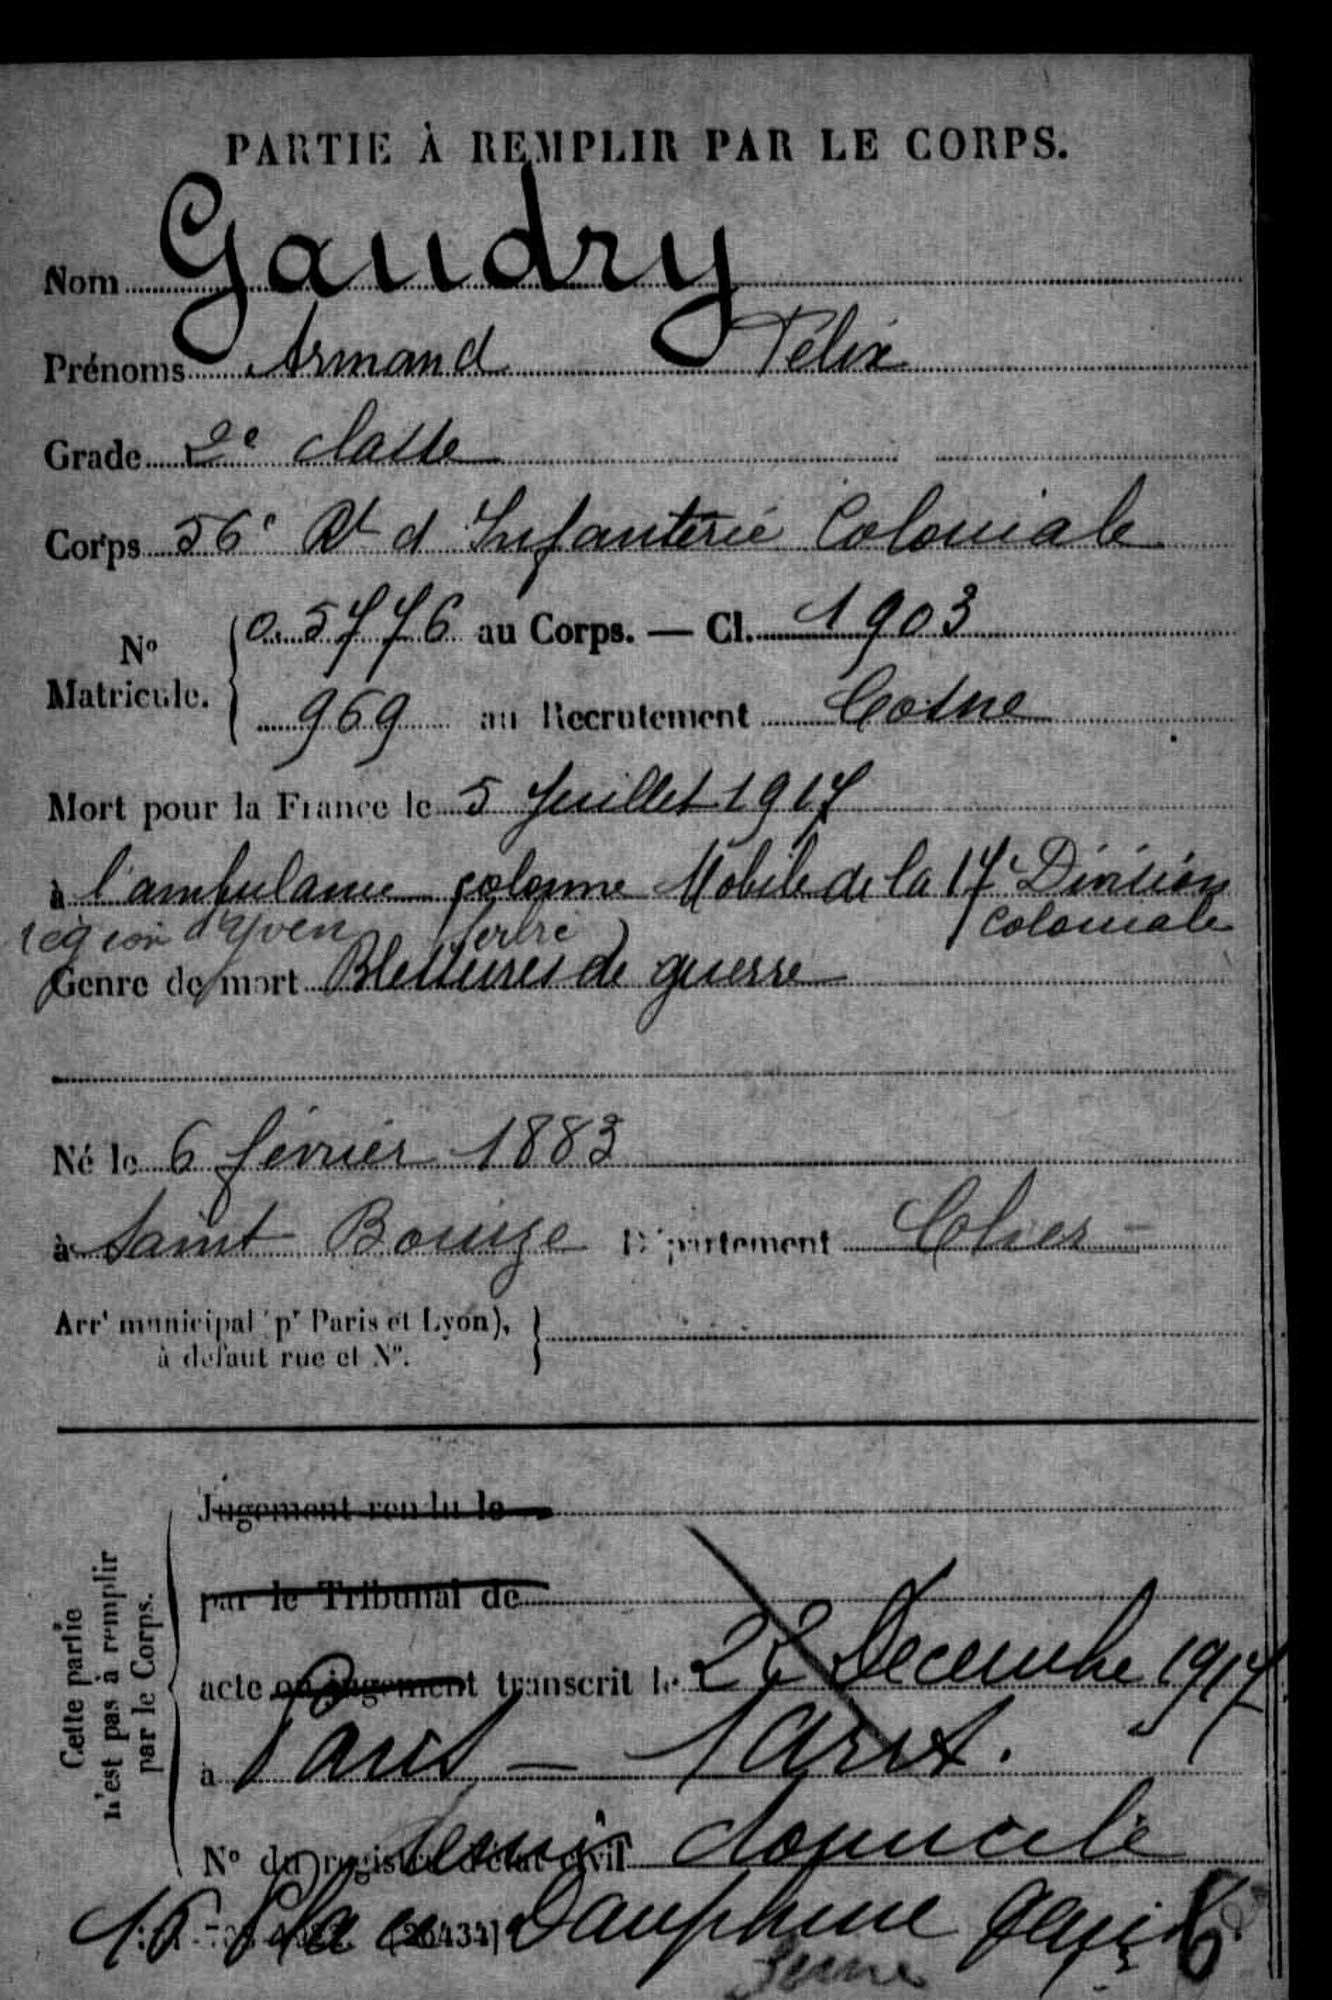 PARTIE À REMPLIR PAR LE CORPS.
Nom Gaudry
Prénoms Armand Félix
Grade 2e classe
Corps 56e Rt d Infanterie Coloniale
No Matricule. 0.5776 au Corps. — Cl. 1903
969 au Recrutement Cosne
Mort pour la France le 5 Juillet 1917
à l'ambulance colonne Mobile de la 17e Division
région d'Yven (Serbie) Coloniale
Genre de mort Blessures de guerre
Né le 6 février 1883
à Saint Bouize Département Cher
Arrt municipal (pr Paris et Lyon),
à défaut rue et No.
Cette partie
n'est pas à remplir
par le Corps.
Jugement rendu le
par le Tribunal de
acte ou jugement transcrit le 22 Décembre 1917
à Paris — 1 arrt.
No du registre d'état civil
dernier domicile
15 Place Dauphine Paris
Seine